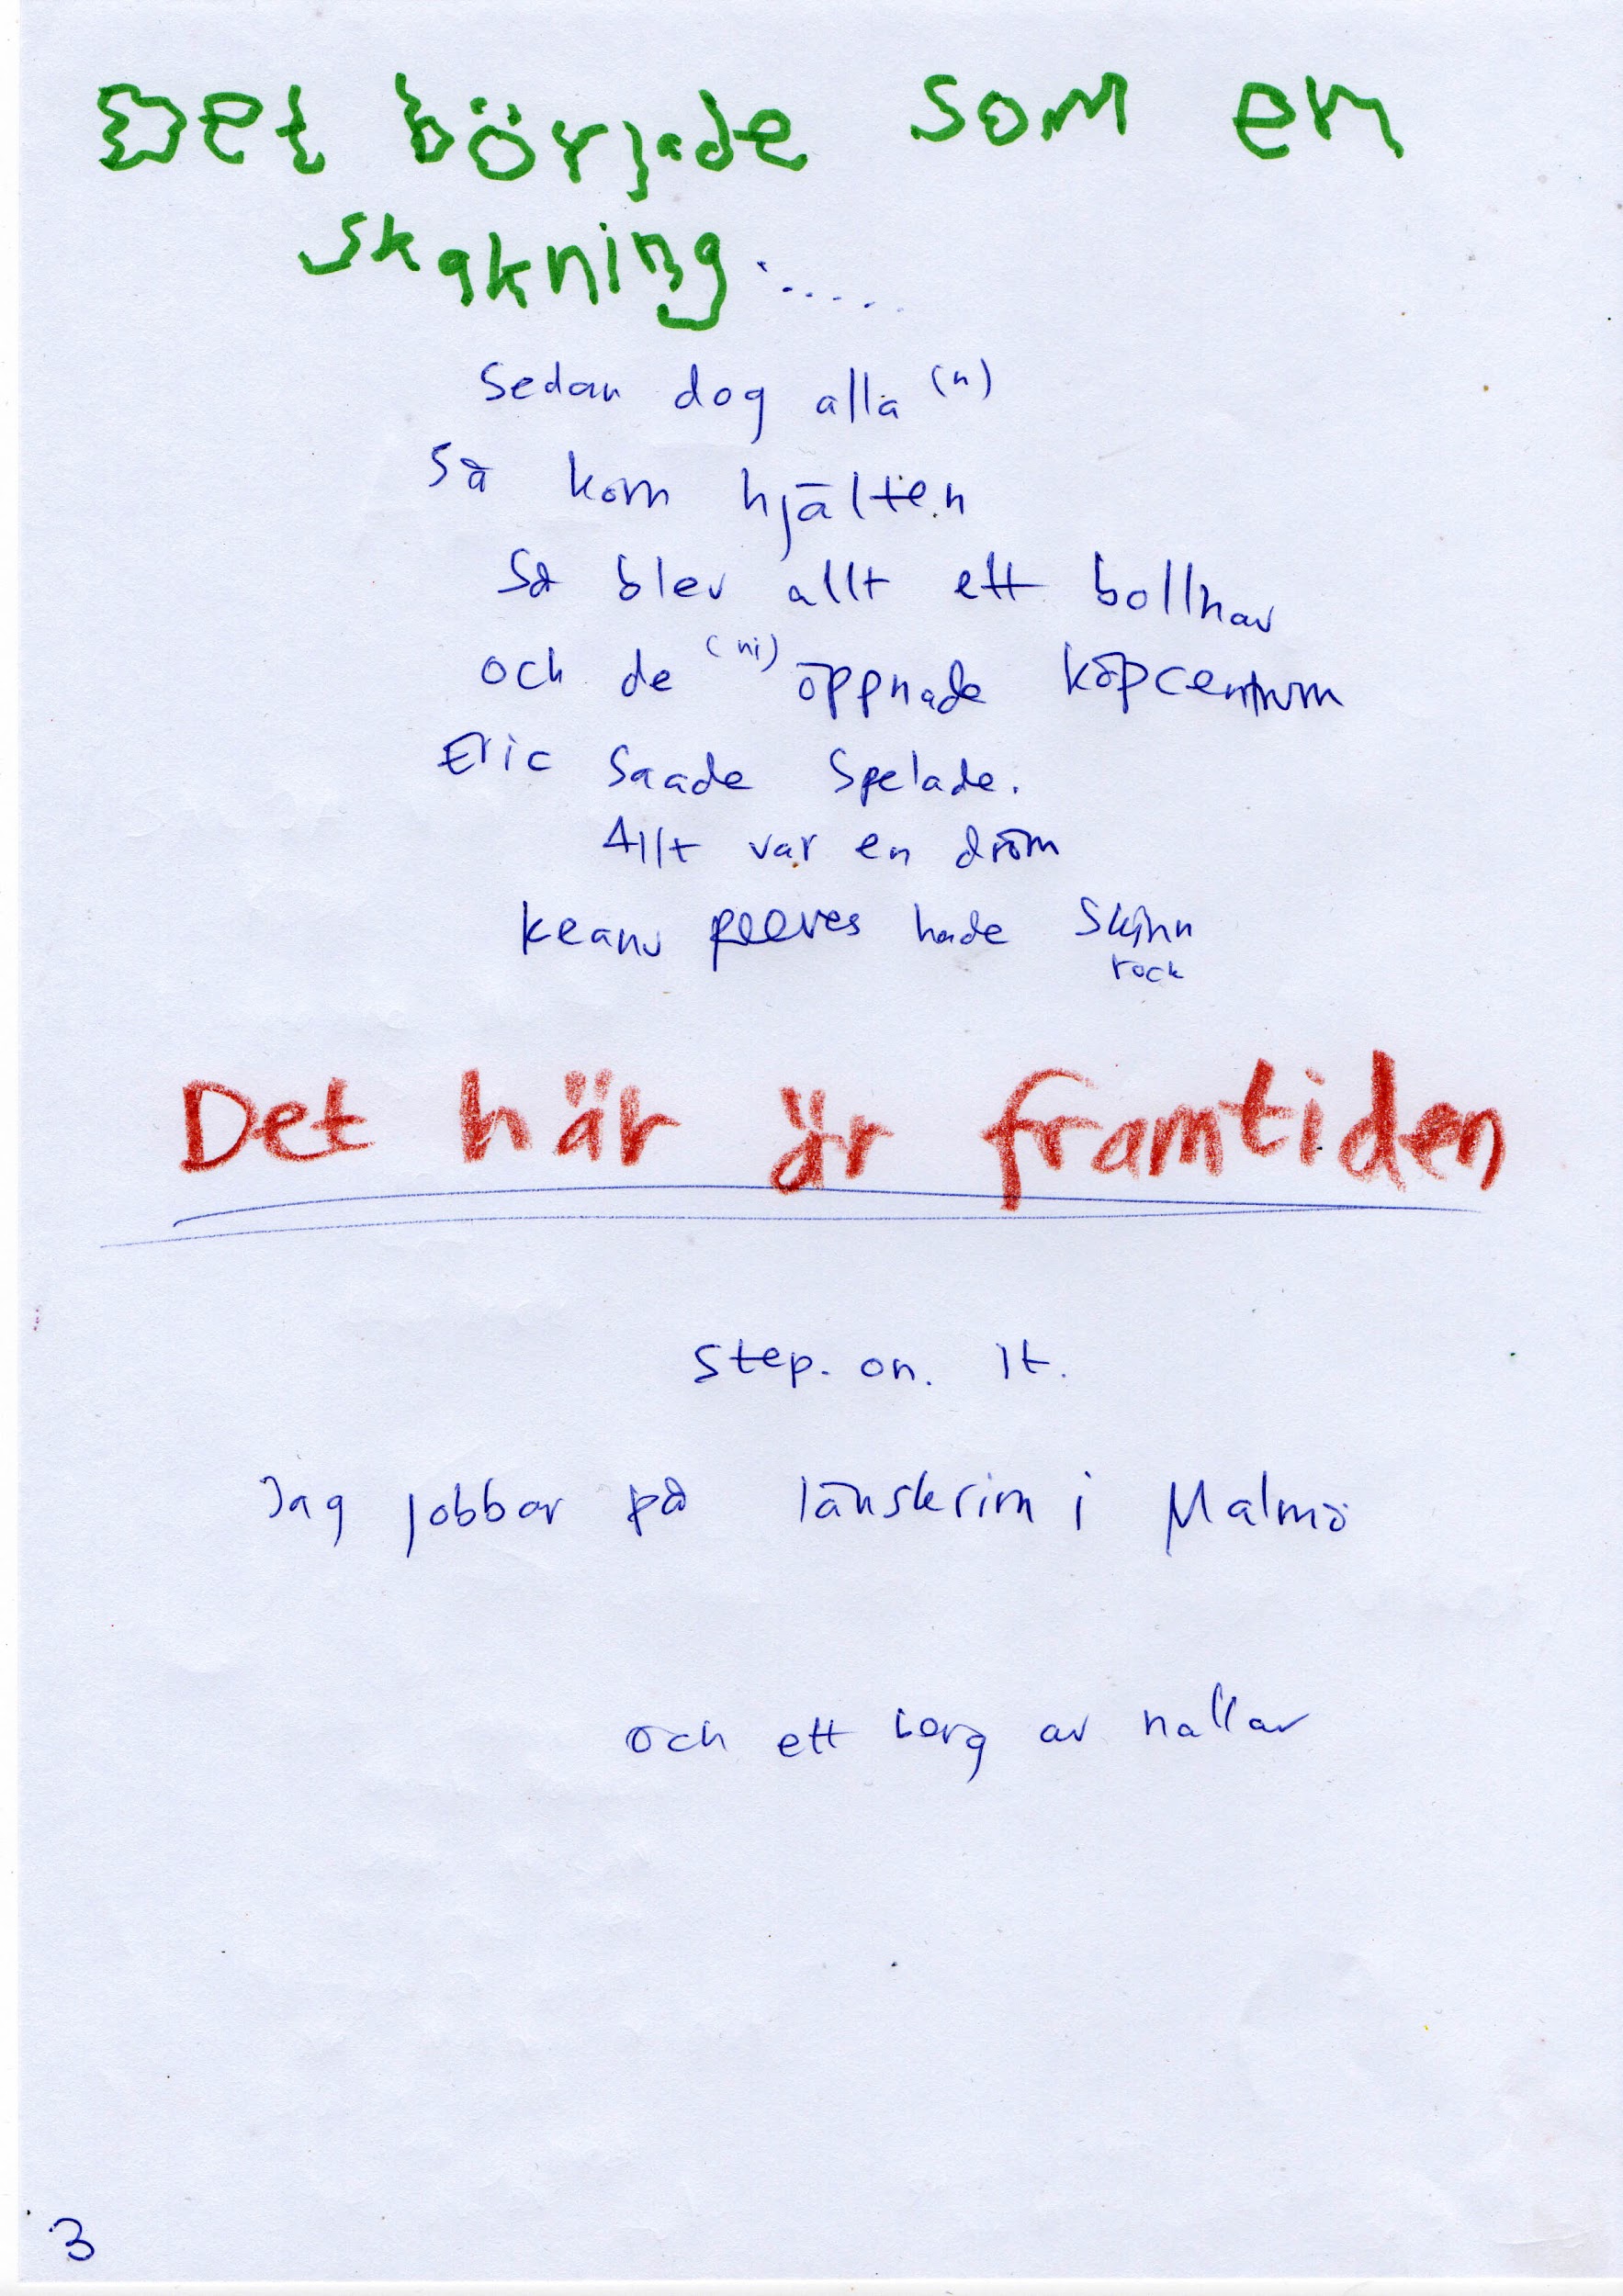 Det började som en
skakning......
Sedan dog alla (n)
Så kom hjälten
Så blev allt ett bollhav
och de (ni) öppnade köpcentrum
Eric Saade spelade.
Allt var en dröm
keanu reeves hade Skinn
rock
Det här är framtiden
Step. on. It.
Jag jobbar på länskrim i Malmö
och ett berg av nallar
3